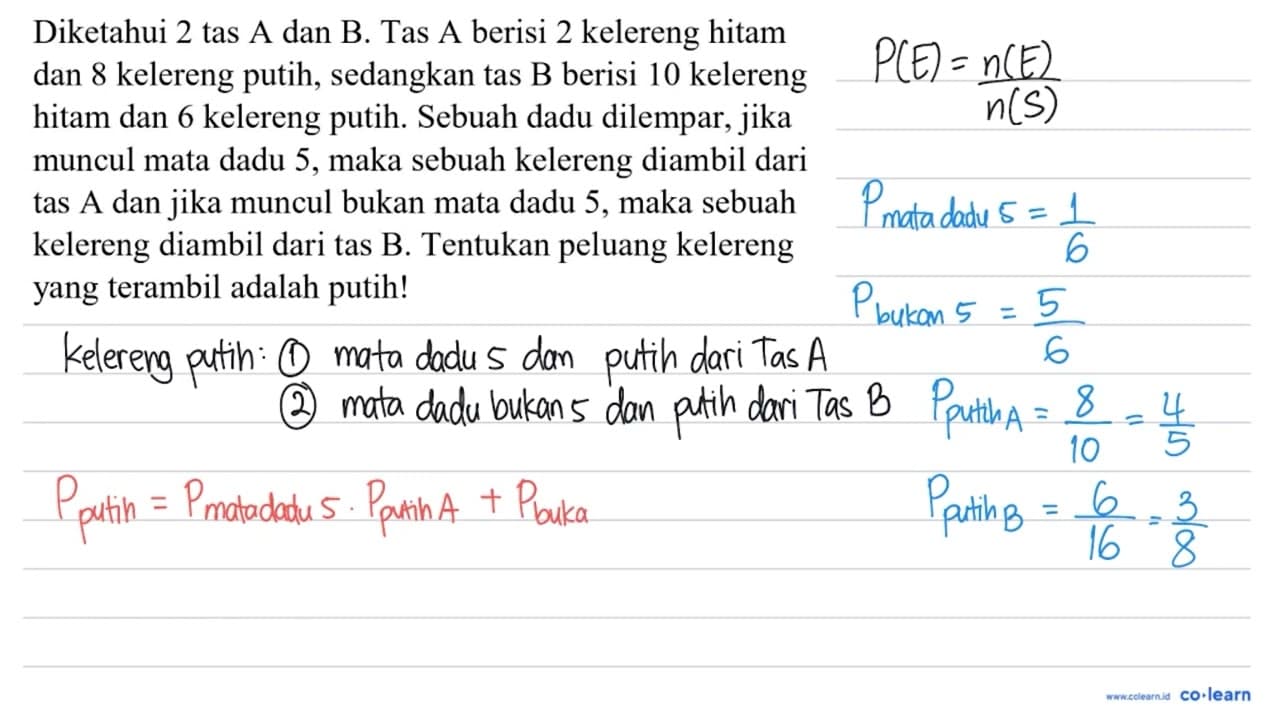 Diketahui 2 tas A dan B. Tas A berisi 2 kelereng hitam
dan 8 kelereng putih, sedangkan tas B berisi 10 kelereng
hitam dan 6 kelereng putih. Sebuah dadu dilempar, jika
muncul mata dadu 5, maka sebuah kelereng diambil dari
tas A dan jika muncul bukan mata dadu 5, maka sebuah
kelereng diambil dari tas B. Tentukan peluang kelereng
yang terambil adalah putih!
P(E) = n(E)/n(S)
P mata dadu 5 = 1/6
P bukan 5 = 5/6
kelereng putih: ① mata dadu 5 dan putih dari Tas A
② mata dadu bukan 5 dan putih dari Tas B
P putih A = 8/10 = 4/5
P putih = P mata dadu 5 . P putih A + P buka
P putih B = 6/16 = 3/8
www.colearn.id co·learn